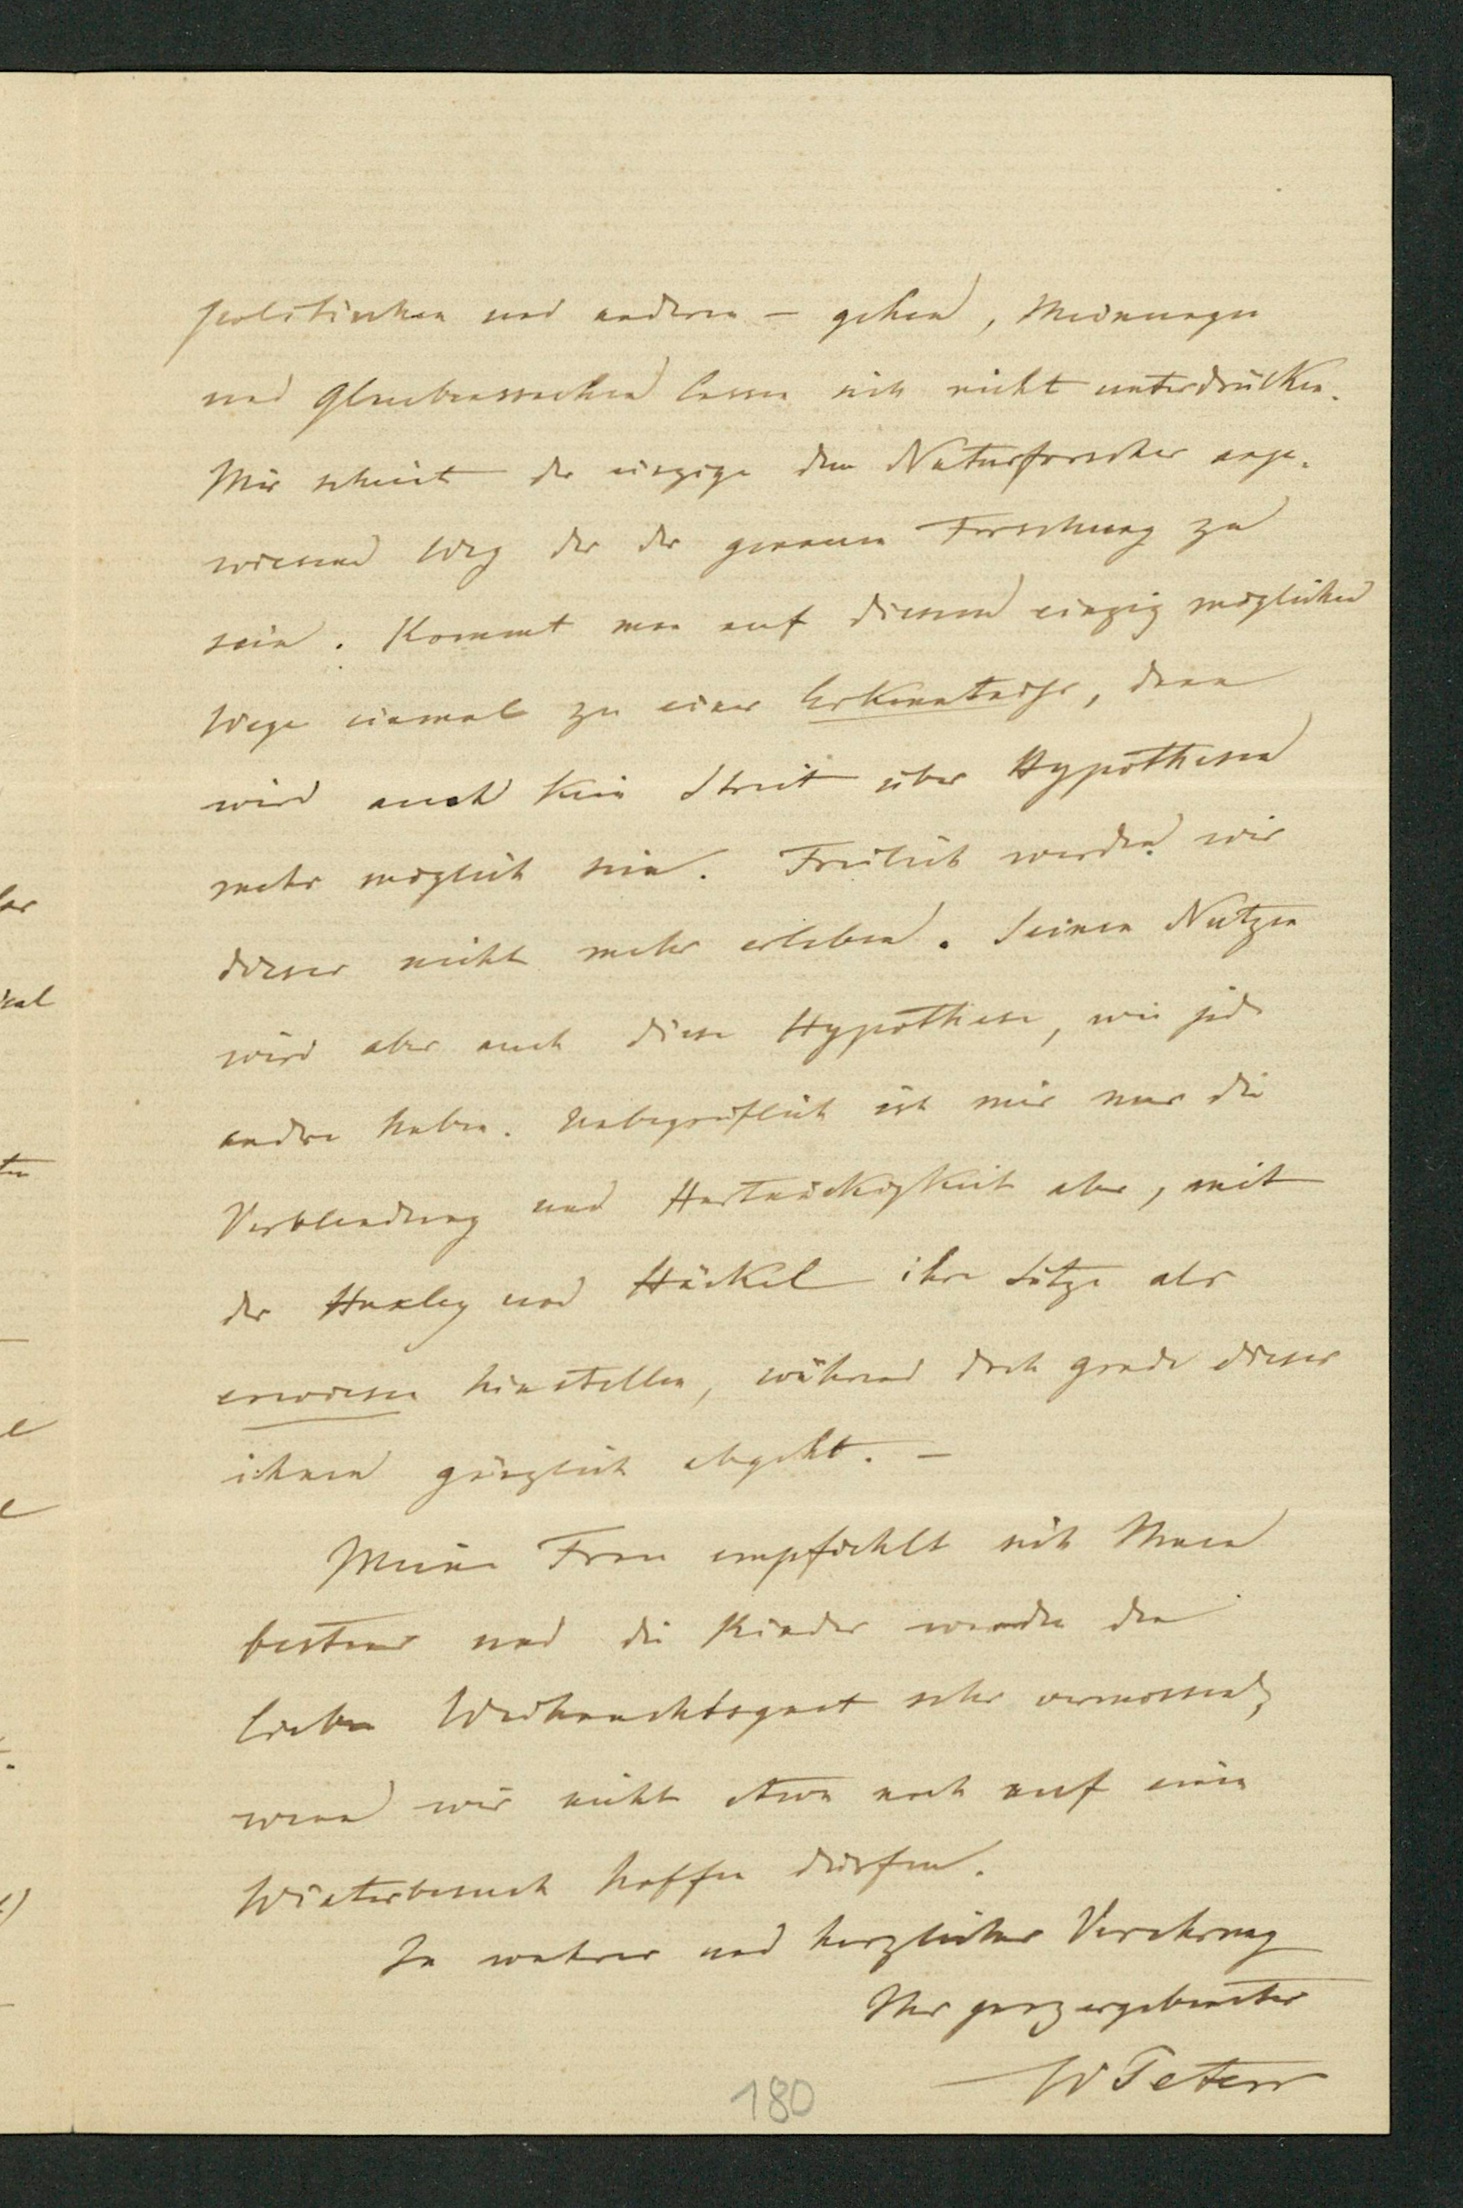 politischen und anderen – gehen, Meinungen
und Glaubenssachen lassen sich nicht unterdrücken.
Mir scheint der einzige dem Naturforscher ange-
wiesene Weg der der genauen Forschung zu
sein. Kommt man auf diesem einzig möglichen
Wege einmal zu einer Erkenntniss, dann
wird auch kein Streit über Hypothesen
mehr möglich sein. Freilich werden wir
dieses nicht mehr erleben. Seinen Nutzen
wird aber auch diese Hypothese, wie jede
andre haben. Unbegreiflich ist mir nur die
Verblendung und Hartnäckigkeit aber, mit
der Huxley und Häckel ihre Sätze als
erwiesen hinstellen, während doch grade dieses
ihnen gänzlich abgeht. –
Meine Frau empfiehlt sich Ihnen
bestens und die Kinder werden den
lieben Weihnachtsgast sehr vermissen,
wenn wir nicht etwa noch auf einen
Winterbesuch hoffen dürfen.
In wahrer und herzlicher Verehrung
Ihr ganz ergebenster
W Peters
180